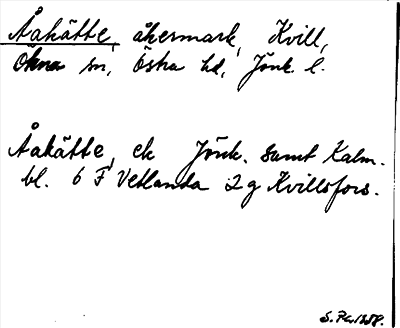 Åakätte, åkermark, Kvill,
Ökna sn, Östra hd, Jönk. l.
Åakätte, ek Jönk. samt Kalm.
bl. 6 F Vetlanda 2 g Kvillsfors.
S. Pa. 1958.